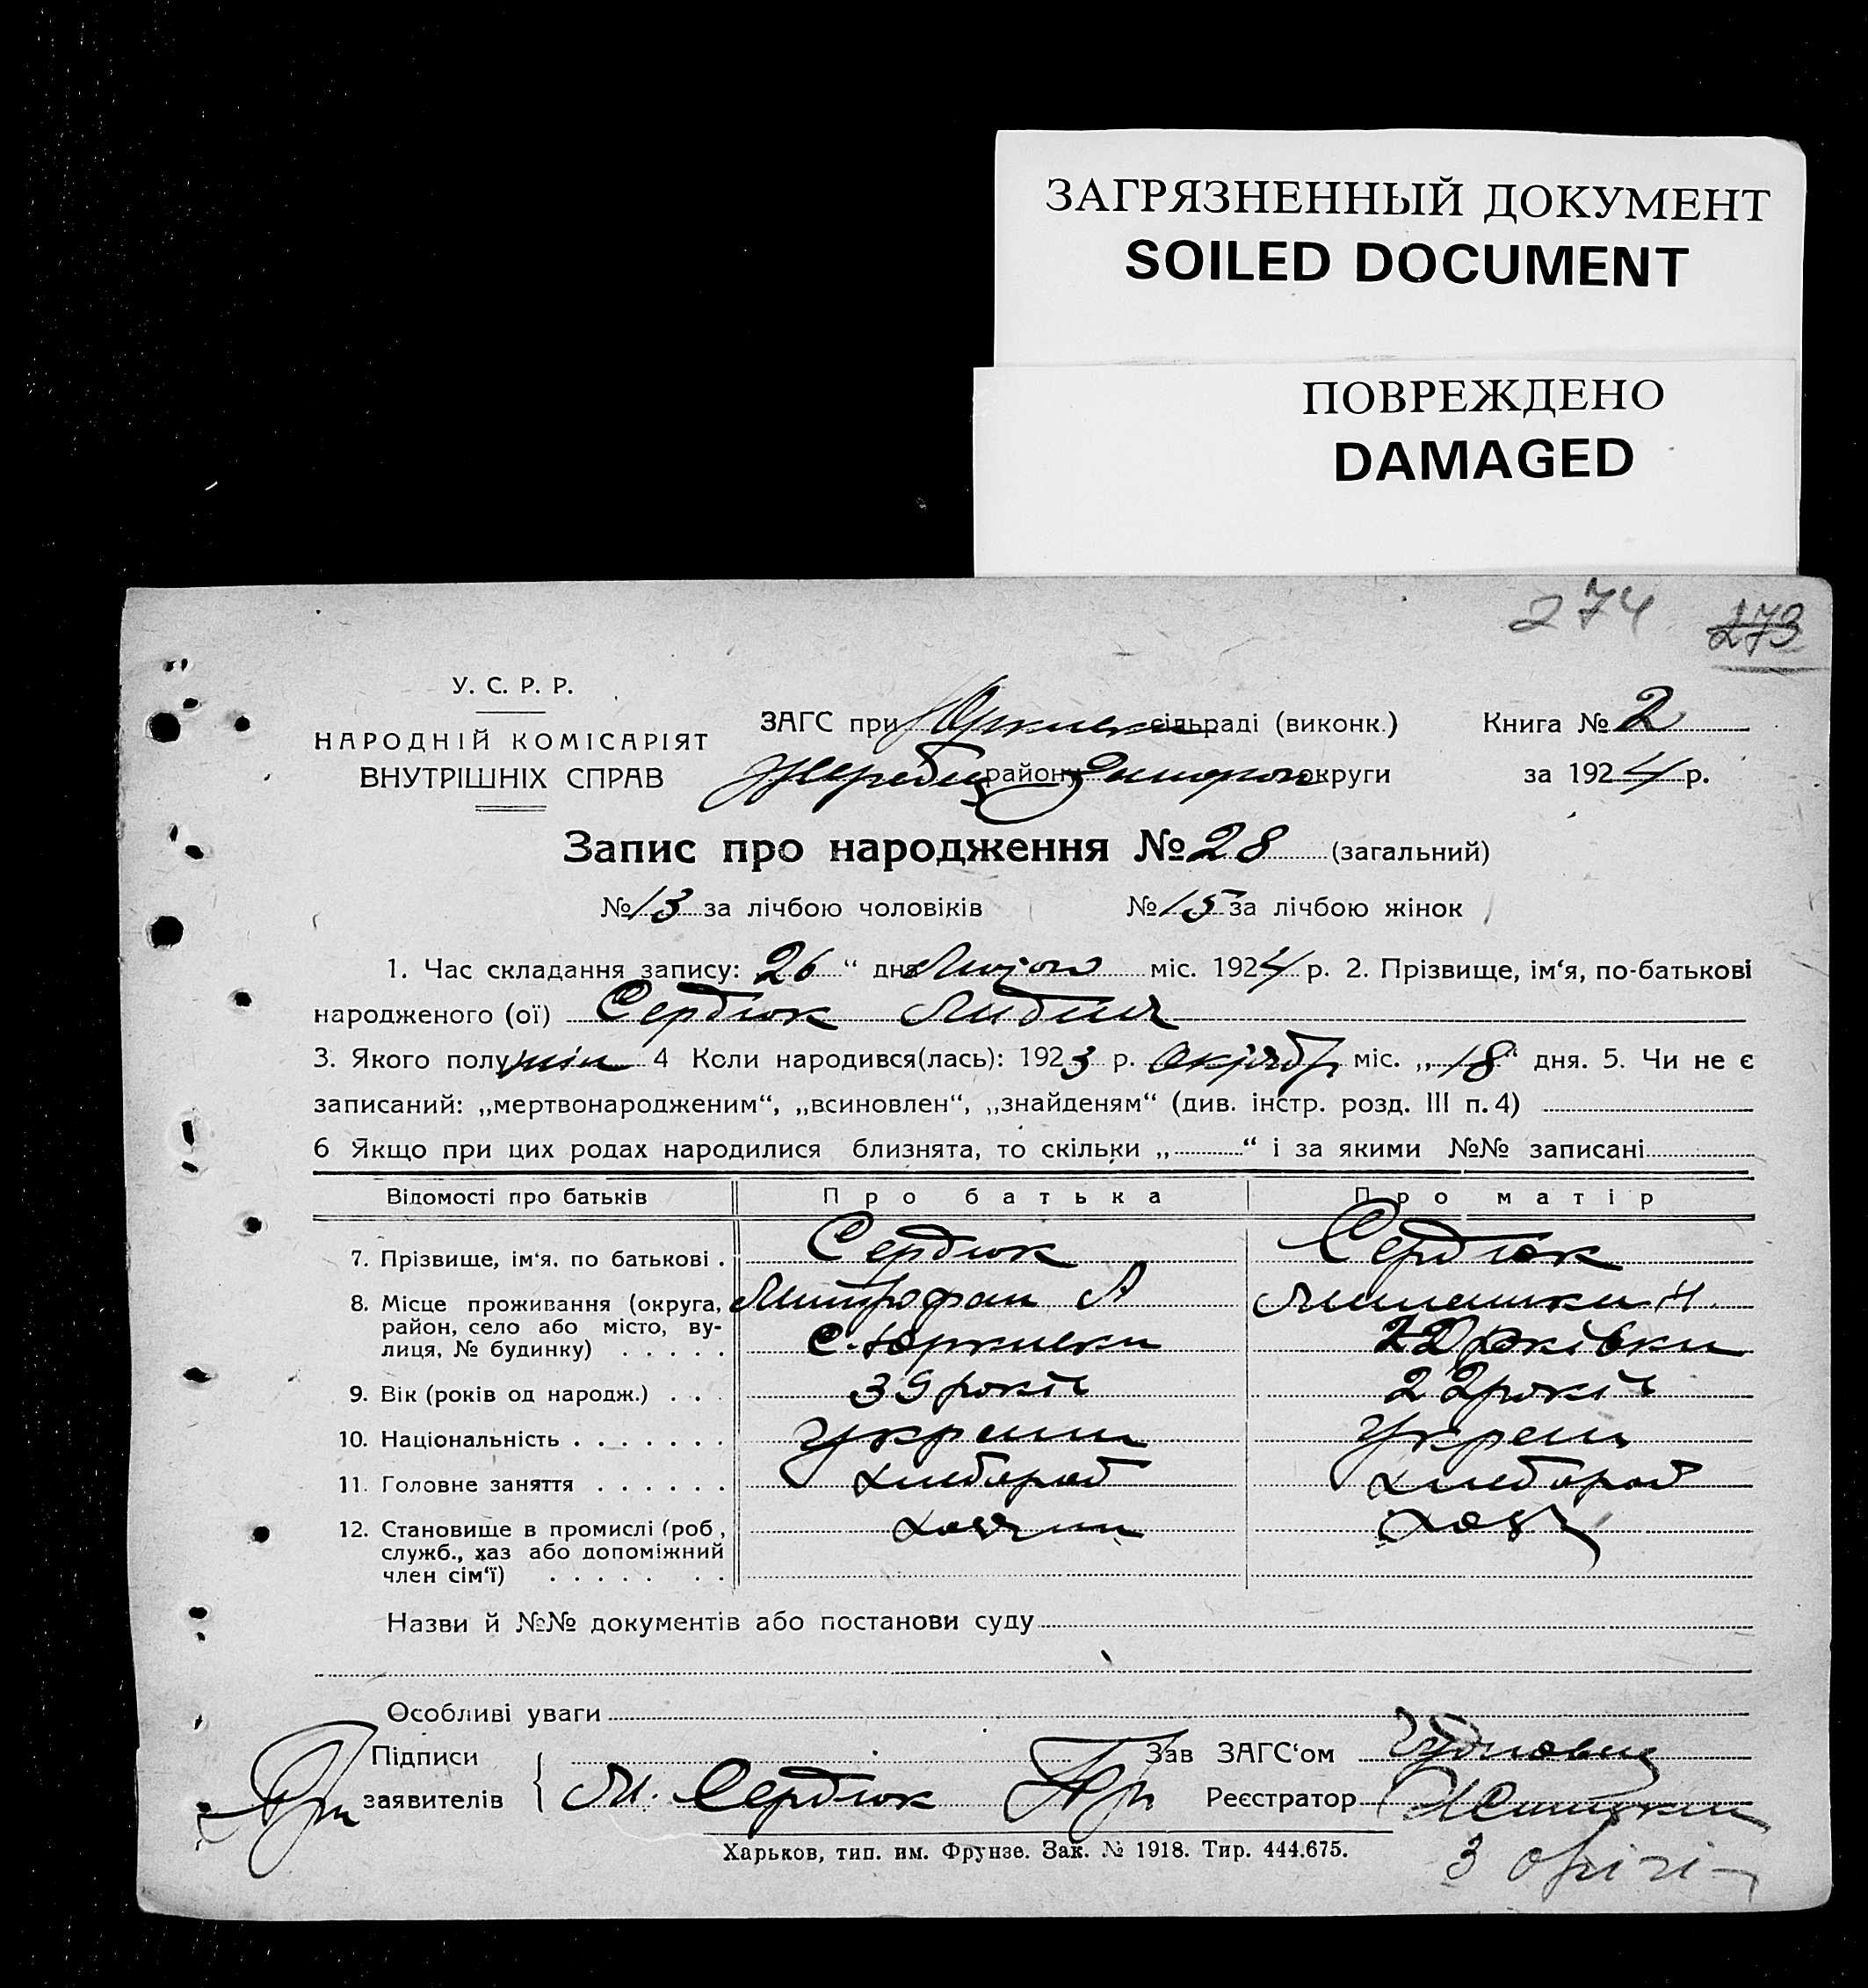 ЗАГРЯЗНЕННЫЙ ДОКУМЕНТ
SOILED DOCUMENT
ПОВРЕЖДЕНО
DAMAGED
274 273
У. С. Р. Р.
НАРОДНІЙ КОМІСАРІЯТ
ВНУТРІШНІХ СПРАВ
ЗАГС при сільраді (виконк.) Книга № 2
району округи за 1924 р.
Запис про народження № 28 (загальний)
№ 13 за лічбою чоловіків № 15 за лічбою жінок
1. Час складання запису: 26 “ дня міс. 1924 р. 2. Прізвище, ім‘я, по-батькові
народженого (ої) Сердюк Лидия
3. Якого полу жін 4 Коли народився(лась): 1923 р. міс. „ 18 “ дня. 5. Чи не є
записаний: „мертвонародженим“, „всиновлен“, „знайденям“ (див. інстр. розд. III п. 4)
6 Якщо при цих родах народилися близнята, то скільки „ “ і за якими №№ записані
Відомості про батьків Про батька Про матір
7. Прізвище, ім‘я. по батькові . Сердюк Сердюк
8. Місце проживання (округа, Митрофан А
район, село або місто, ву-
лиця, № будинку) . . . . .
9. Вік (років од народж.) . . . 39 років 22 років
10. Національність . . . . . . .
11. Головне заняття . . . . . . хлібороб хлібороб
12. Становище в промислі (роб,
служб., хаз або допоміжний
член сім‘ї) . . . . . . .
Назви й №№ документів або постанови суду
Особливі уваги
Підписи Зав ЗАГС‘ом
заявителів М. Сердюк Реєстратор
Харьков, тип. им. Фрунзе. Зак. № 1918. Тир. 444.675.